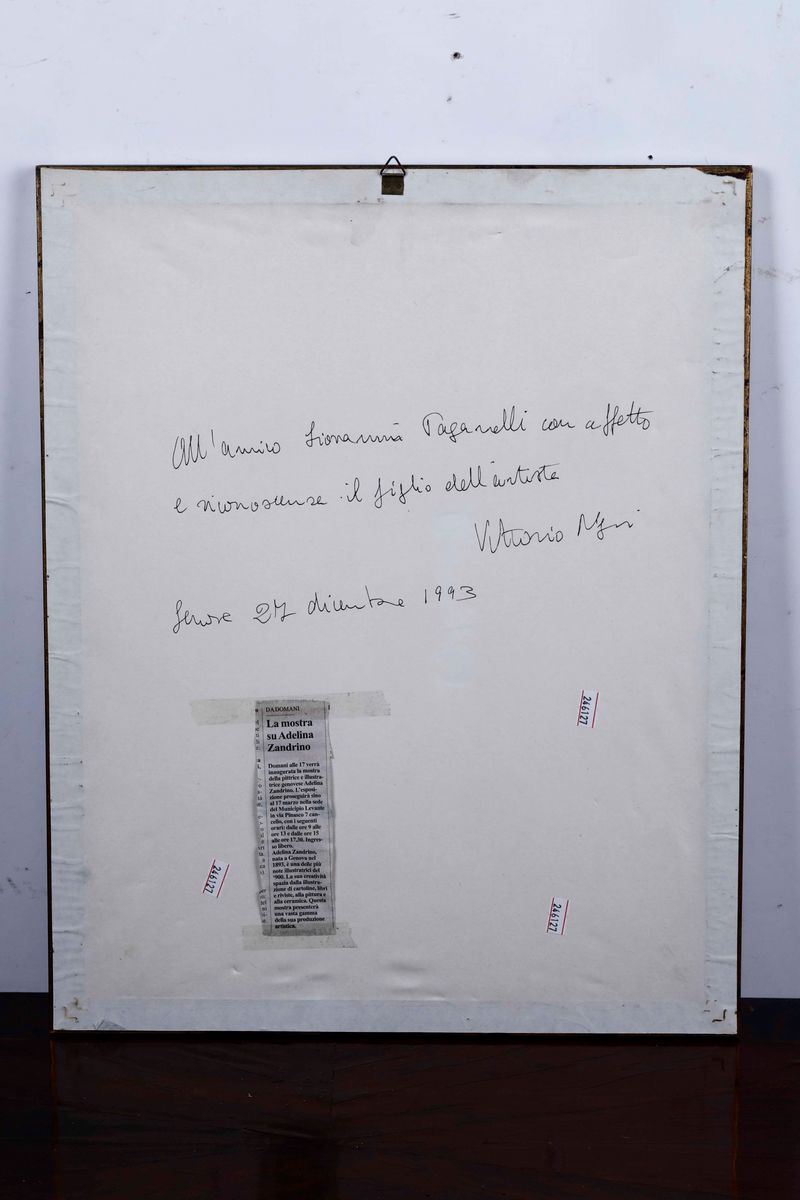 All'amico Giovanni Paganelli con affetto
e riconoscenza il figlio dell'artista
Vittorio
Genova 27 dicembre 1993
DA DOMANI
La mostra
su Adelina
Zandrino
Domani alle 17 verrà
inaugurata la mostra
della pittrice e illustra-
trice genovese Adelina
Zandrino. L'esposi-
zione proseguirà sino
al 17 marzo nella sede
del Municipio Levante
in via Pinasco 7 can-
cello, con i seguenti
orari: dalle ore 9 alle
ore 13 e dalle ore 15
alle ore 17.30. Ingres-
so libero.
Adelina Zandrino,
nata a Genova nel
1893, è una delle più
note illustratrici del
'900. La sua creatività
spazia dalla illustra-
zione di cartoline, libri
e riviste, alla pittura e
alla ceramica. Questa
mostra presenterà
una vasta gamma
della sua produzione
artistica.
246127
246127
246127